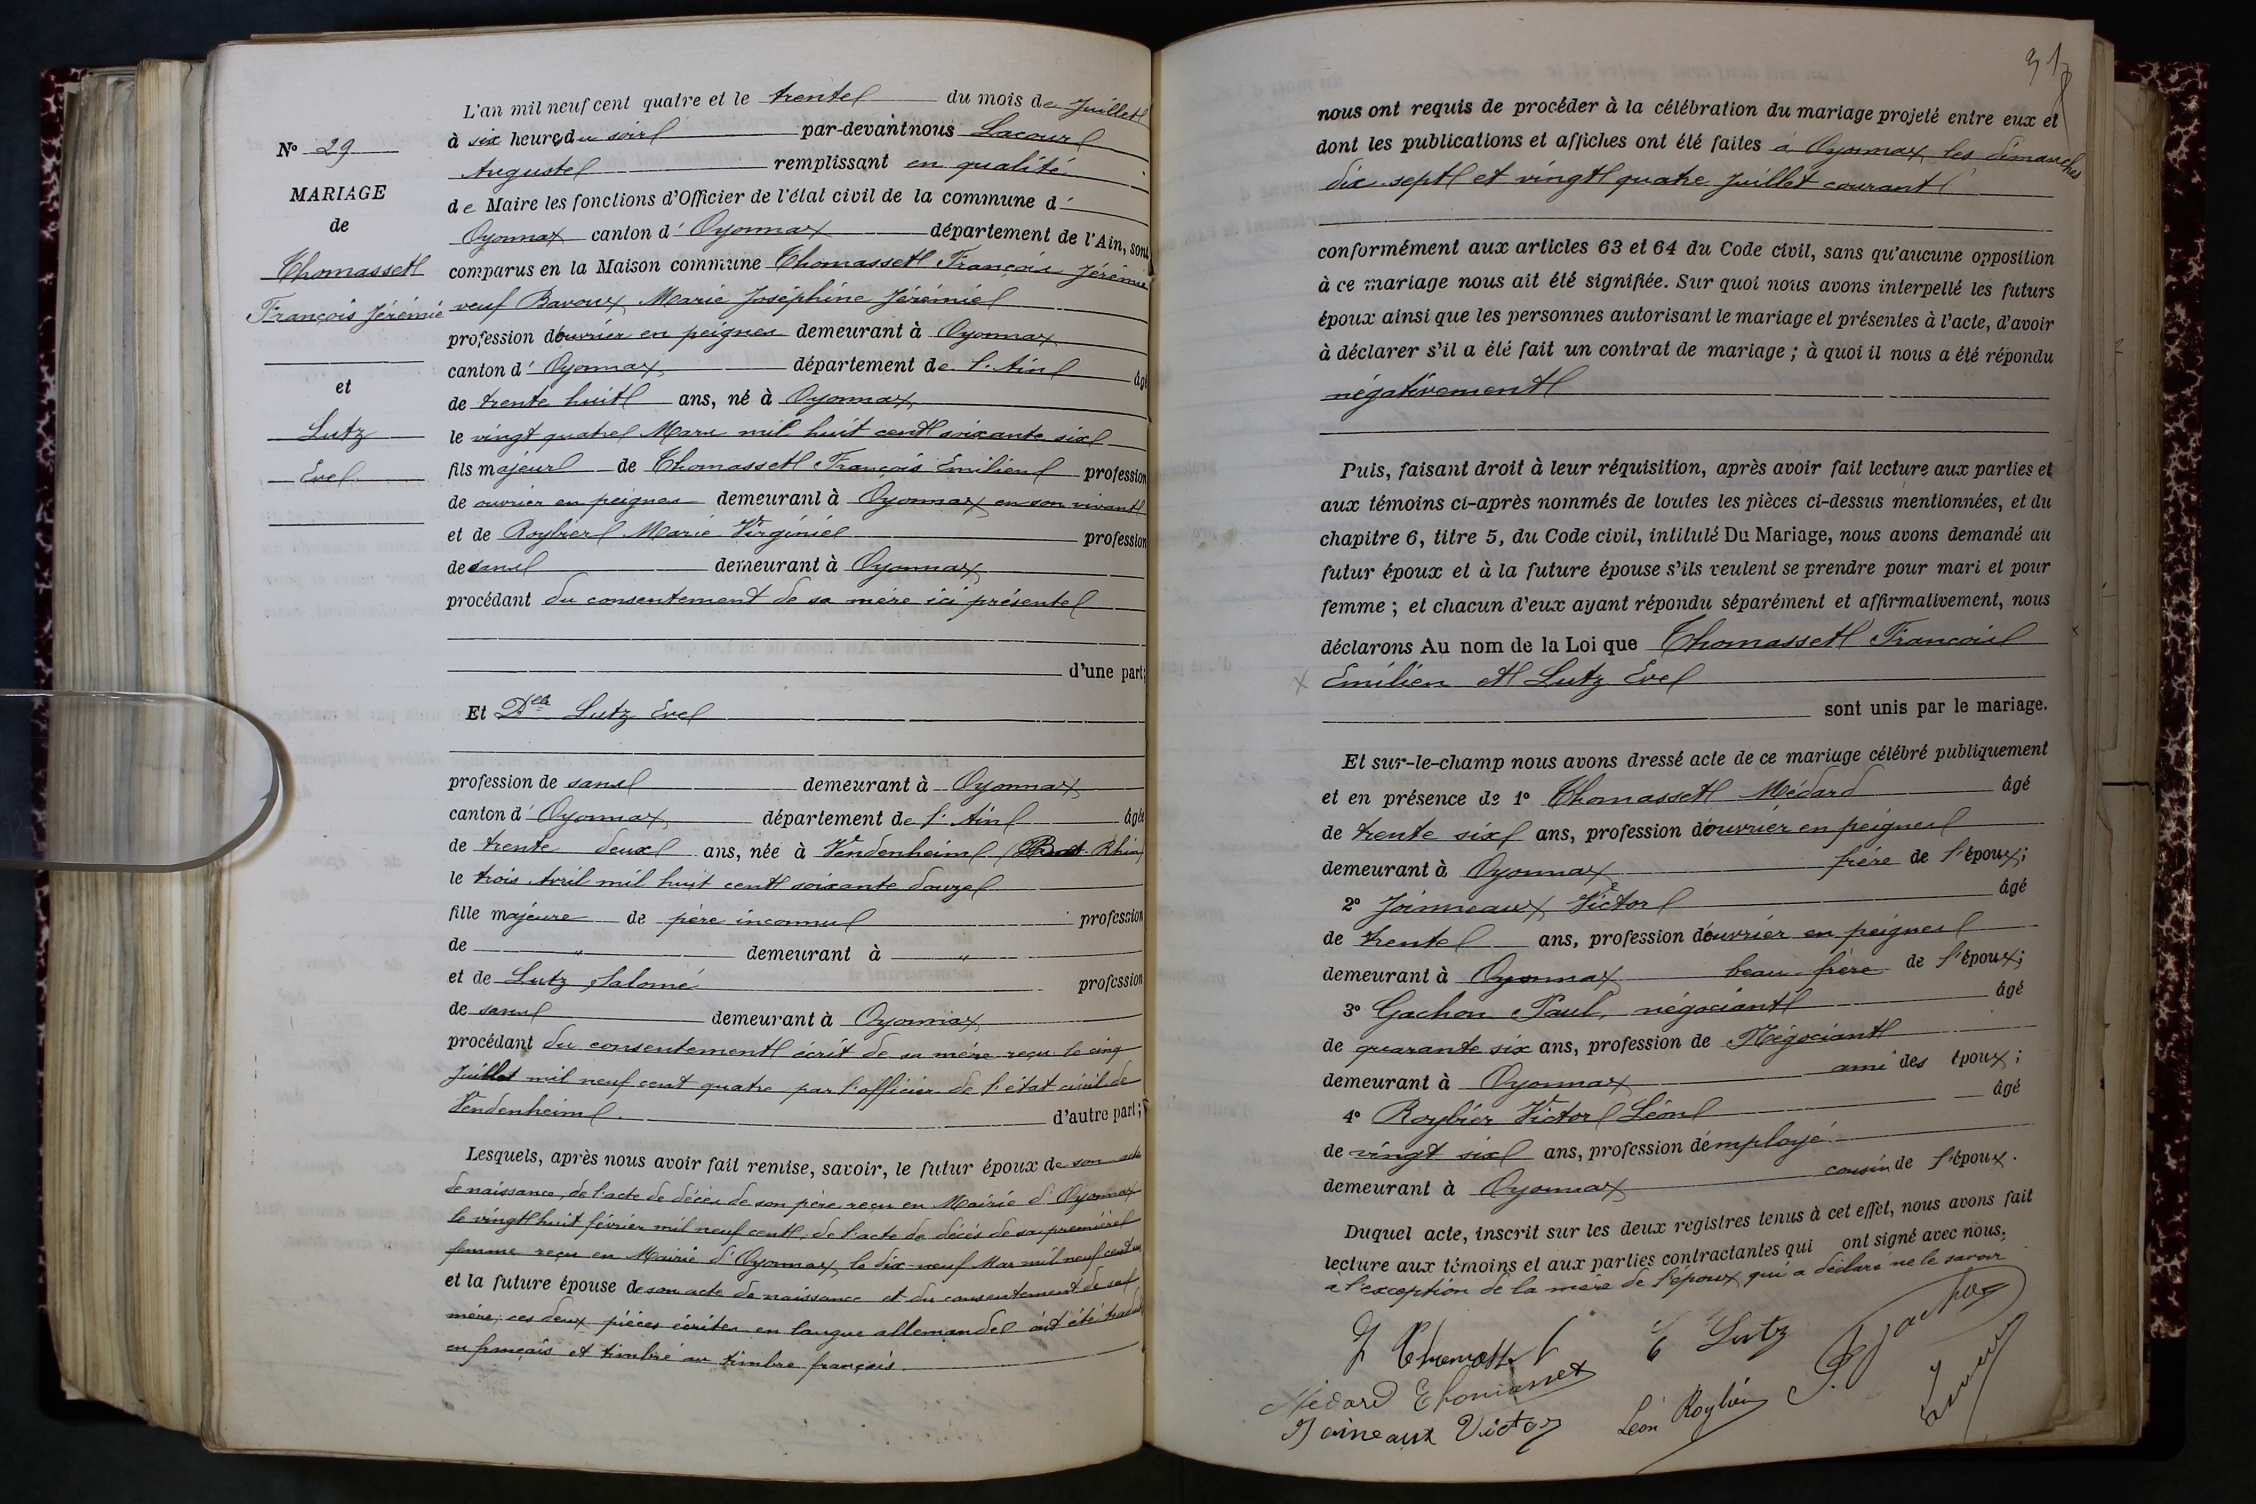 L'an mil neuf cent quatre et le trente du mois de Juillet
à six heures du soir par-devant nous Lacour
Auguste remplissant en qualité
de Maire les fonctions d'Officier de l'état civil de la commune d'
Oyonnax canton d' Oyonnax département de l'Ain, sont
comparus en la Maison commune Thomasset François Jérémie
veuf Bavoux Marie Joséphine Jérémie
profession d'ouvrier en peignes demeurant à Oyonnax
canton d' Oyonnax département de l'Ain âgé
de trente huit ans, né à Oyonnax
le vingt quatre Mars mil huit cent soixante six
fils majeur de Thomasset François Emilien profession
de ouvrier en peignes demeurant à Oyonnax en son vivant
et de Roybier Marie Virginie profession
de sans demeurant à Oyonnax
procédant du consentement de sa mère ici présente
d'une part;
Nº 29
MARIAGE
de
Thomasset
François Jérémie
et
Lutz
Eve
Et Dlle Lutz Eve
profession de sans demeurant à Oyonnax
canton d' Oyonnax département de l'Ain âgée
de trente deux ans, née à Vendenheim (Bas Rhin)
le trois Avril mil huit cent soixante douze
fille majeure de père inconnu profession
de " demeurant à "
et de Lutz Salomé profession
de sans demeurant à Oyonnax
procédant du consentement écrit de sa mère reçu le cinq
Juillet mil neuf cent quatre par l'officier de l'état civil de
Vendenheim d'autre part;
Lesquels, après nous avoir fait remise, savoir, le futur époux de son acte
de naissance, de l'acte de décès de son père reçu en Mairie d'Oyonnax
le vingt huit février mil neuf cent, de l'acte de décès de sa première
femme reçu en Mairie d'Oyonnax le dix-neuf Mars mil neuf cent un
et la future épouse de son acte de naissance et du consentement de sa
mère, ces deux pièces écrites en langue allemande ont été traduit
en français et timbré au timbre français.
31
nous ont requis de procéder à la célébration du mariage projeté entre eux et
dont les publications et affiches ont été faites à Oyonnax les dimanches
dix-sept et vingt quatre Juillet courant
conformément aux articles 63 et 64 du Code civil, sans qu'aucune opposition
à ce mariage nous ait été signifiée. Sur quoi nous avons interpellé les futurs
époux ainsi que les personnes autorisant le mariage et présentes à l'acte, d'avoir
à déclarer s'il a été fait un contrat de mariage ; à quoi il nous a été répondu
négativement
Puis, faisant droit à leur réquisition, après avoir fait lecture aux parties et
aux témoins ci-après nommés de toutes les pièces ci-dessus mentionnées, et du
chapitre 6, titre 5, du Code civil, intitulé Du Mariage, nous avons demandé au
futur époux et à la future épouse s'ils veulent se prendre pour mari et pour
femme ; et chacun d'eux ayant répondu séparément et affirmativement, nous
déclarons Au nom de la Loi que Thomasset François
x Emilien et Lutz Eve
sont unis par le mariage.
Et sur-le-champ nous avons dressé acte de ce mariage célébré publiquement
et en présence de 1º Thomasset Médard âgé
de trente six ans, profession d'ouvrier en peignes
demeurant à Oyonnax frère de l'époux;
2º Joinneaux Victor âgé
de trente ans, profession d'ouvrier en peignes
demeurant à Oyonnax beau-frère de l'époux;
3º Gachon Paul, négociant âgé
de quarante six ans, profession de Négociant
demeurant à Oyonnax ami des époux;
4º Roybier Victor Léon âgé
de vingt six ans, profession d'employé
demeurant à Oyonnax cousin de l'époux.
Duquel acte, inscrit sur les deux registres tenus à cet effet, nous avons fait
lecture aux témoins et aux parties contractantes qui ont signé avec nous,
à l'exception de la mère de l'époux qui a déclaré ne le savoir
J Thomasset E Lutz P. Gachon
Médard Thomasset
Joineaux Victor Léon Roybier